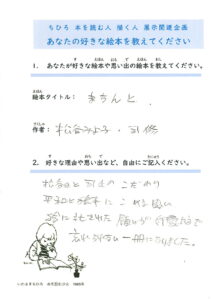 ちひろ 本を読む人 描く人 展示関連企画
あなたの好きな絵本を教えてください
1. あなたが好きな絵本や思い出の絵本を教えてください。
絵本タイトル： まちんと
作者： 松谷みよ子・司修
2. 好きな理由や思い出など、自由にご記入ください。
松谷さんと司さんのこだわり
平和と絵本に こめる思い
絵に 託された 願いが
言い 一冊になりました。
いわさきちひろ 1965年